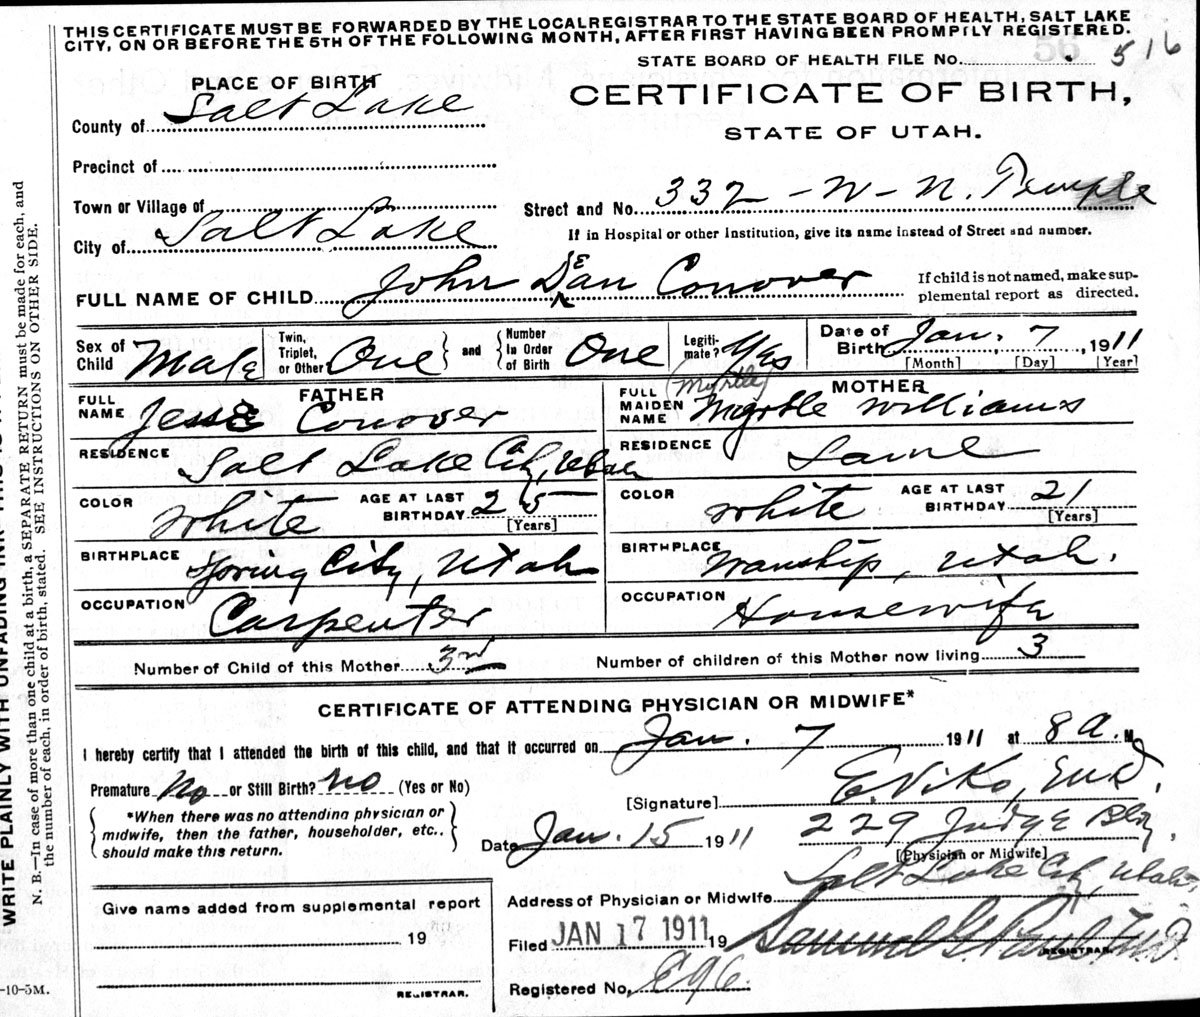 THIS CERTIFICATE MUST BE FORWARDED BY THE LOCAL REGISTRAR TO THE STATE BOARD OF HEALTH, SALT LAKE
CITY, ON OR BEFORE THE 5TH OF THE FOLLOWING MONTH, AFTER FIRST HAVING BEEN PROMPTLY REGISTERED.
STATE BOARD OF HEALTH FILE No. 516
PLACE OF BIRTH
CERTIFICATE OF BIRTH,
County of Salt Lake
STATE OF UTAH.
Precinct of
Town or Village of
Street and No. 332 - W - N. Temple
City of Salt Lake
If in Hospital or other Institution, give its name instead of Street and number.
FULL NAME OF CHILD John Dean Conover
If child is not named, make sup-
plemental report as directed.
Sex of Child Male
Twin, Triplet, or Other One
and
Number In Order of Birth One
Legiti-mate? Yes
Date of Birth Jan. 7, 1911
[Month] [Day] [Year]
FATHER
FULL NAME Jesse Conover
MOTHER
(Myrtle)
FULL MAIDEN NAME Myrtle Williams
RESIDENCE Salt Lake City, Utah
RESIDENCE Same
COLOR White
AGE AT LAST BIRTHDAY 25
[Years]
COLOR White
AGE AT LAST BIRTHDAY 21
[Years]
BIRTHPLACE Spring City, Utah
BIRTHPLACE Wanship, Utah.
OCCUPATION Carpenter
OCCUPATION Housewife
Number of Child of this Mother 3rd
Number of children of this Mother now living 3
CERTIFICATE OF ATTENDING PHYSICIAN OR MIDWIFE*
I hereby certify that I attended the birth of this child, and that it occurred on Jan. 7 1911 at 8 a. M
Premature No or Still Birth? No (Yes or No)
[Signature] E. Viko, M.D.
*When there was no attending physician or
midwife, then the father, householder, etc.,
should make this return.
Date Jan. 15 1911
229 Judge Bldg,
[Physician or Midwife]
Address of Physician or Midwife Salt Lake City, Utah
Give name added from supplemental report
19
REGISTRAR.
Filed JAN 17 1911 19 Samuel G. Paul M.D.
REGISTRAR.
Registered No. E96
WRITE PLAINLY WITH UNFADING INK
N. B.—In case of more than one child at a birth, a SEPARATE RETURN must be made for each, and
the number of each, in order of birth, stated. SEE INSTRUCTIONS ON OTHER SIDE.
-10-5M.